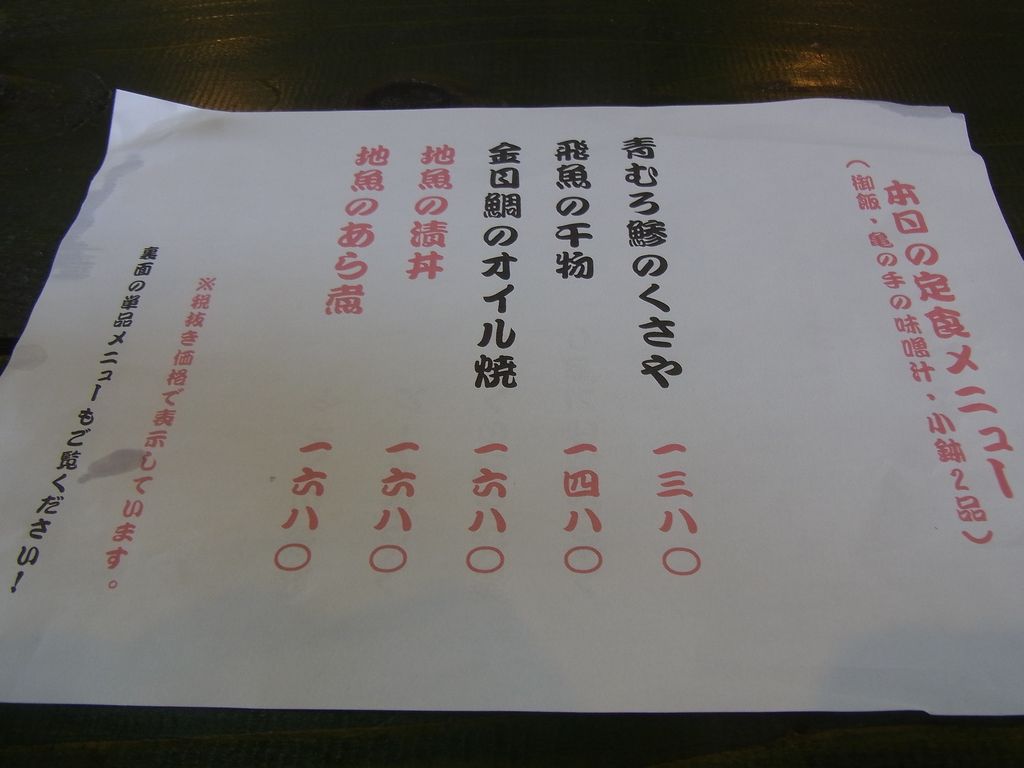 本日の定食メニュー
（御飯・亀の手の味噌汁・小鉢2品）
青むろ鯵のくさや 一三八〇
飛魚の干物 一四八〇
金目鯛のオイル焼 一六八〇
地魚の漬丼 一六八〇
地魚のあら煮 一六八〇
※税抜き価格で表示しています。
裏面の単品メニューもご覧ください！